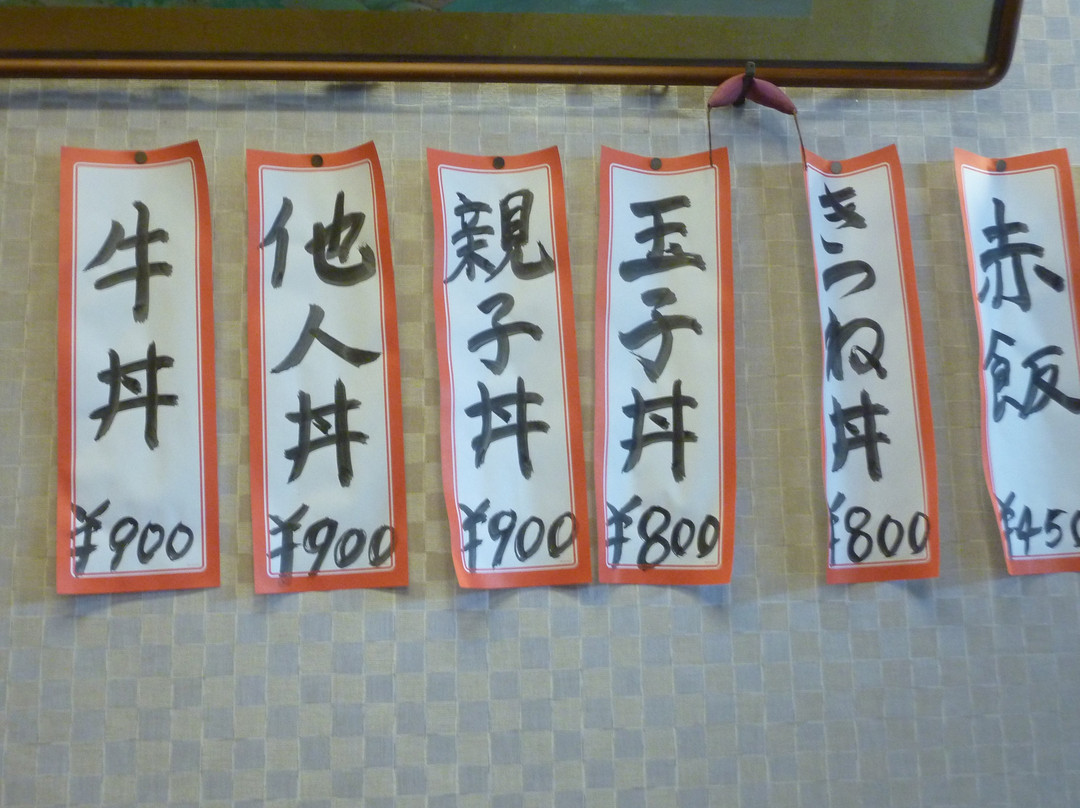 牛丼
¥900
他人丼
¥900
親子丼
¥900
玉子丼
¥800
きつね丼
¥800
赤飯
¥450